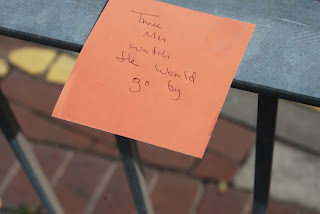 Three
Men
watch
the world
go by